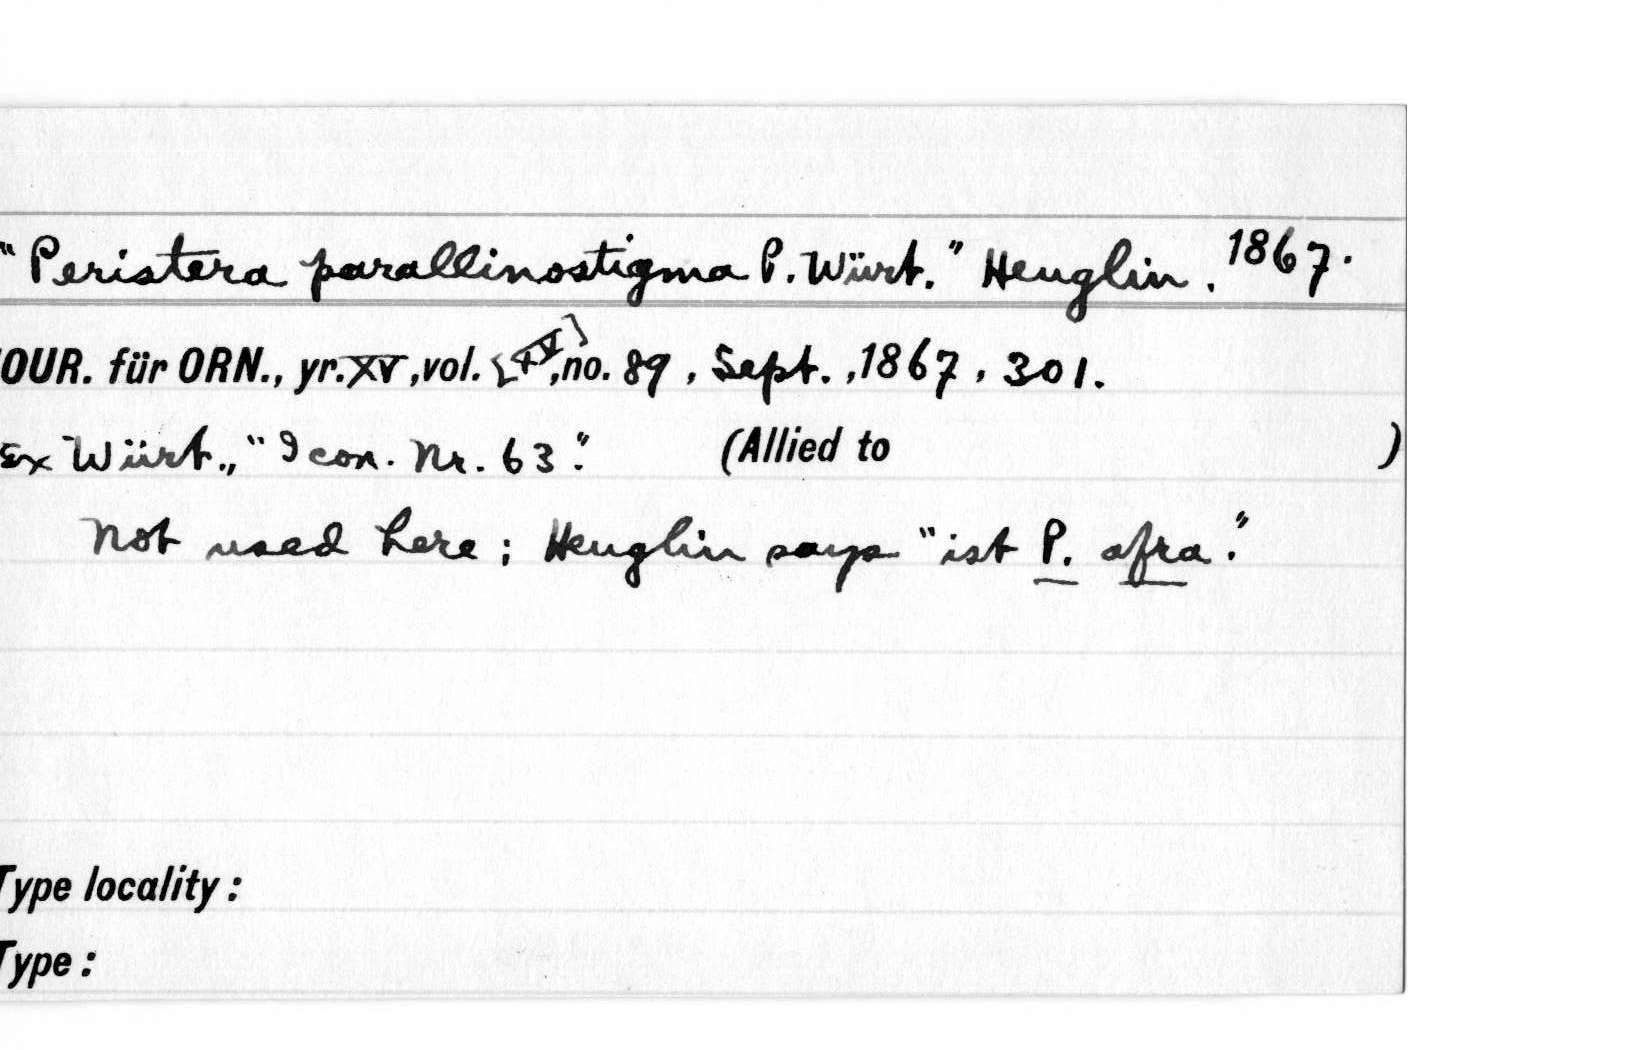 "Peristera parallinostigma P. Würt." Heuglin. 1867.
OUR. für ORN., yr. XV, vol. [XV], no. 89, Sept., 1867, 301.
Ex Würt., "Icon. Nr. 63". (Allied to )
Not used here; Heuglin says "ist P. afra."
Type locality:
Type: